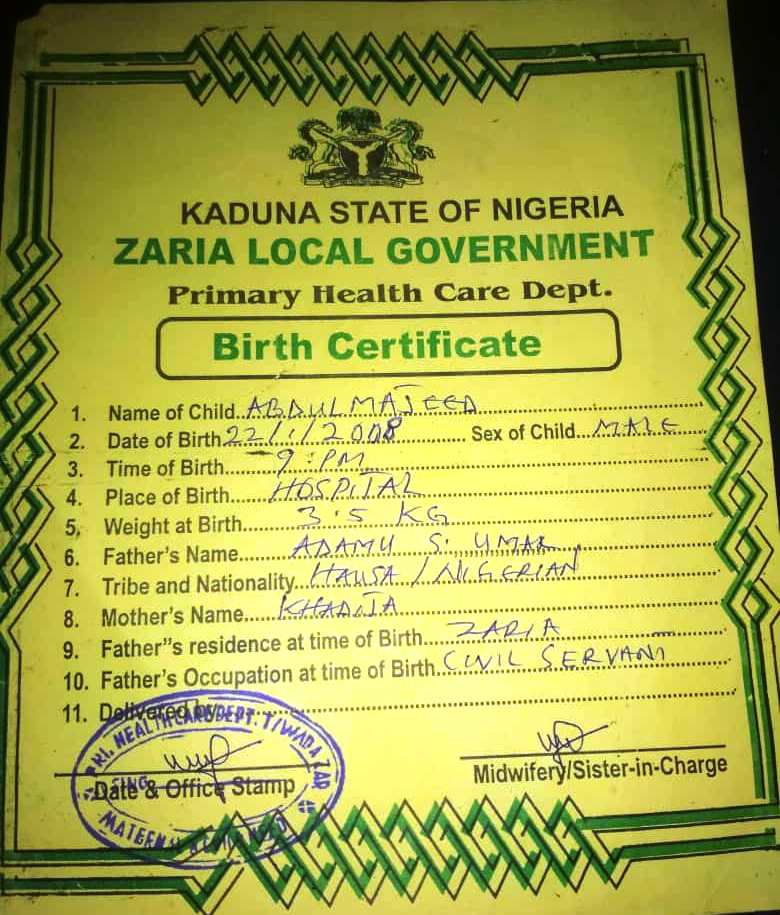 KADUNA STATE OF NIGERIA
ZARIA LOCAL GOVERNMENT
Primary Health Care Dept.
Birth Certificate
1. Name of Child...ABDULMAJEED
2. Date of Birth...22/1/2008 Sex of Child...MALE
3. Time of Birth...9:PM
4. Place of Birth...HOSPITAL
5. Weight at Birth...3.5 KG
6. Father's Name...ADAMU S. UMAR
7. Tribe and Nationality...HAUSA/NIGERIAN
8. Mother's Name...KHADIJA
9. Father"s residence at time of Birth...ZARIA
10. Father's Occupation at time of Birth...CIVIL SERVANT
11. Delivered by
PRI. HEALTH CARE DEPT. T/WADA ZAR
Date & Office Stamp
Midwifery/Sister-in-Charge